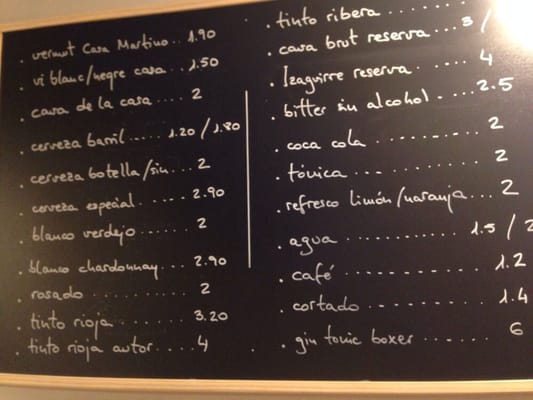 . vermut Casa Martino .. 1.90
. vi blanc/negre casa ... 1.50
. cava de la casa .... 2
. cerveza barril ..... 1.20 / 1.80
. cerveza botella/sin ... 2
. cerveza especial ..... 2.90
. blanco verdejo ..... 2
. blanco chardonnay ... 2.90
. rosado ......... 2
. tinto rioja ........ 3.20
. tinto rioja autor ..... 4
. tinto ribera ........
. cava brut reserva ... 3 /
. Izaguirre reserva ..... 4
. bitter sin alcohol ..... 2.5
. coca cola .......... 2
. tónica ........... 2
. refresco limón/naranja ... 2
. agua ............ 1.5 / 2
. café ............ 1.2
. cortado .......... 1.4
. gin tonic boxer ...... 6